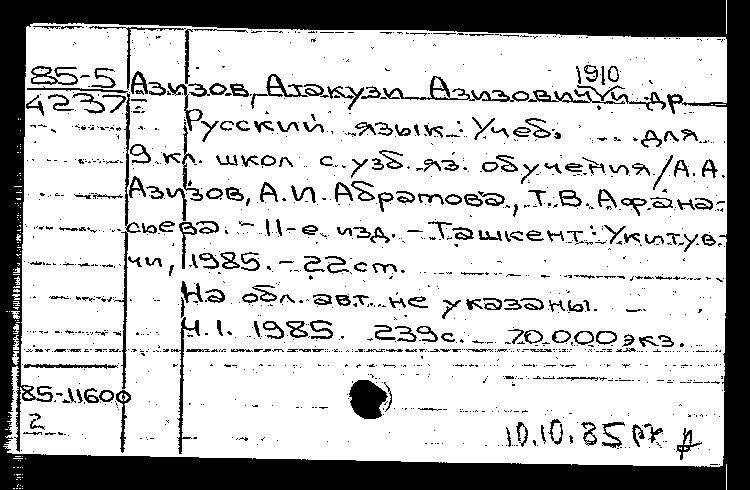 1910
85-5 Азизов, Атакузи Азизович и др
4237
Русский язык: Учеб. ... для
9 кл. школ с узб. яз. обучения/А.А.
Азизов, А.И. Абратова, Т.В. Афана-
сьева. - 11-е изд. - Ташкент: Укитув-
чи, 1985. - 22 ст.
На обл. авт. не указаны.
Ч.1. 1985. 239с. 70.000 экз.
85-11600
2
10.10.85